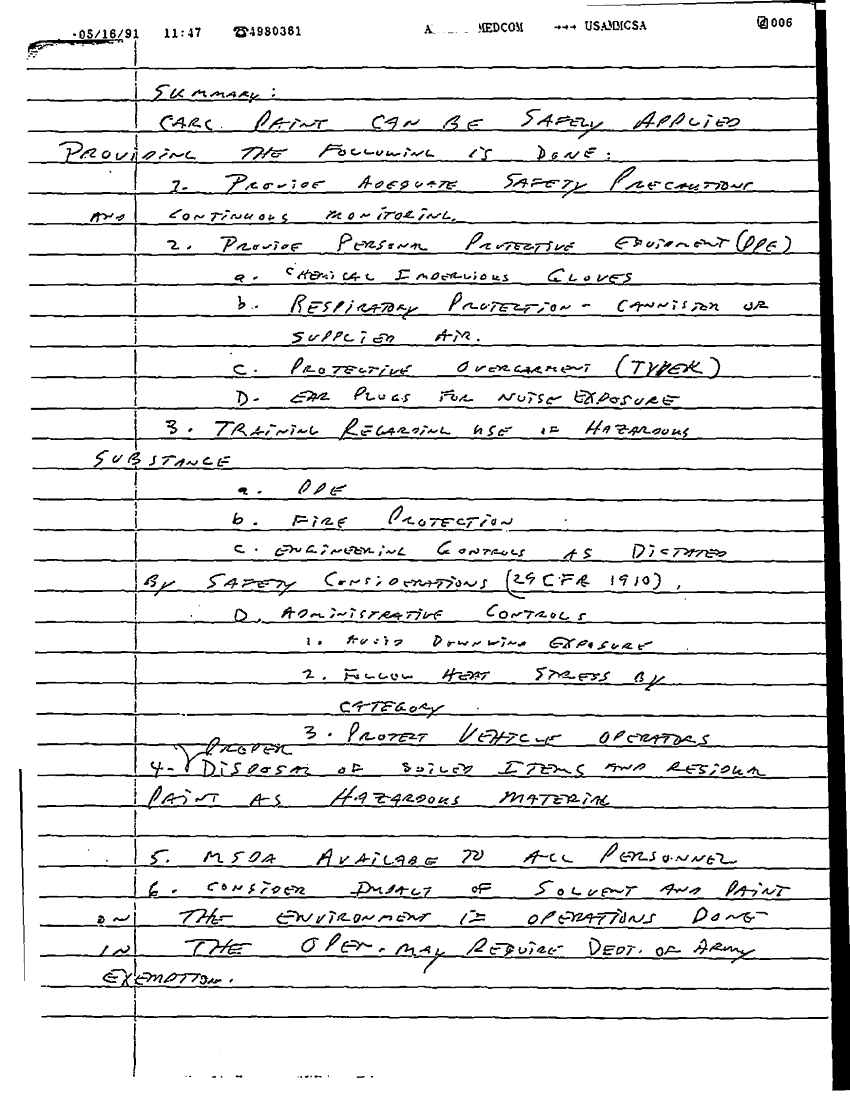 05/16/91 11:47 ☎4980361 MEDCOM →→→ USAMMCSA 006
SUMMARY:
CARC PAINT CAN BE SAFELY APPLIED
PROVIDING THE FOLLOWING IS DONE:
1. PROVIDE ADEQUATE SAFETY PRECAUTIONS
AND CONTINUOUS MONITORING.
2. PROVIDE PERSONAL PROTECTIVE EQUIPMENT (PPE)
a. CHEMICAL IMPERVIOUS GLOVES
b. RESPIRATORY PROTECTION - CANNISTOR OR
SUPPLIED AIR.
C. PROTECTIVE OVERGARMENT (TYVEK)
D. EAR PLUGS FOR NOISE EXPOSURE
3. TRAINING REGARDING USE OF HAZARDOUS
SUBSTANCE
a. PPE
b. FIRE PROTECTION
C. ENGINEERING CONTROLS AS DICTATED
BY SAFETY CONSIDERATIONS (29 CFR 1910).
D. ADMINISTRATIVE CONTROLS
1. AVOID DOWNWIND EXPOSURE
2. FOLLOW HEAT STRESS BY
CATEGORY
3. PROTECT VEHICLE OPERATORS
4. PROPER DISPOSAL OF SOILED ITEMS AND RESIDUAL
PAINT AS HAZARDOUS MATERIAL
5. MSDA AVAILABE TO ALL PERSONNEL
6. CONSIDER IMPACT OF SOLVENT AND PAINT
ON THE ENVIRONMENT IF OPERATIONS DONE
IN THE OPEN. MAY REQUIRE DEPT. OF ARMY
EXEMPTION.